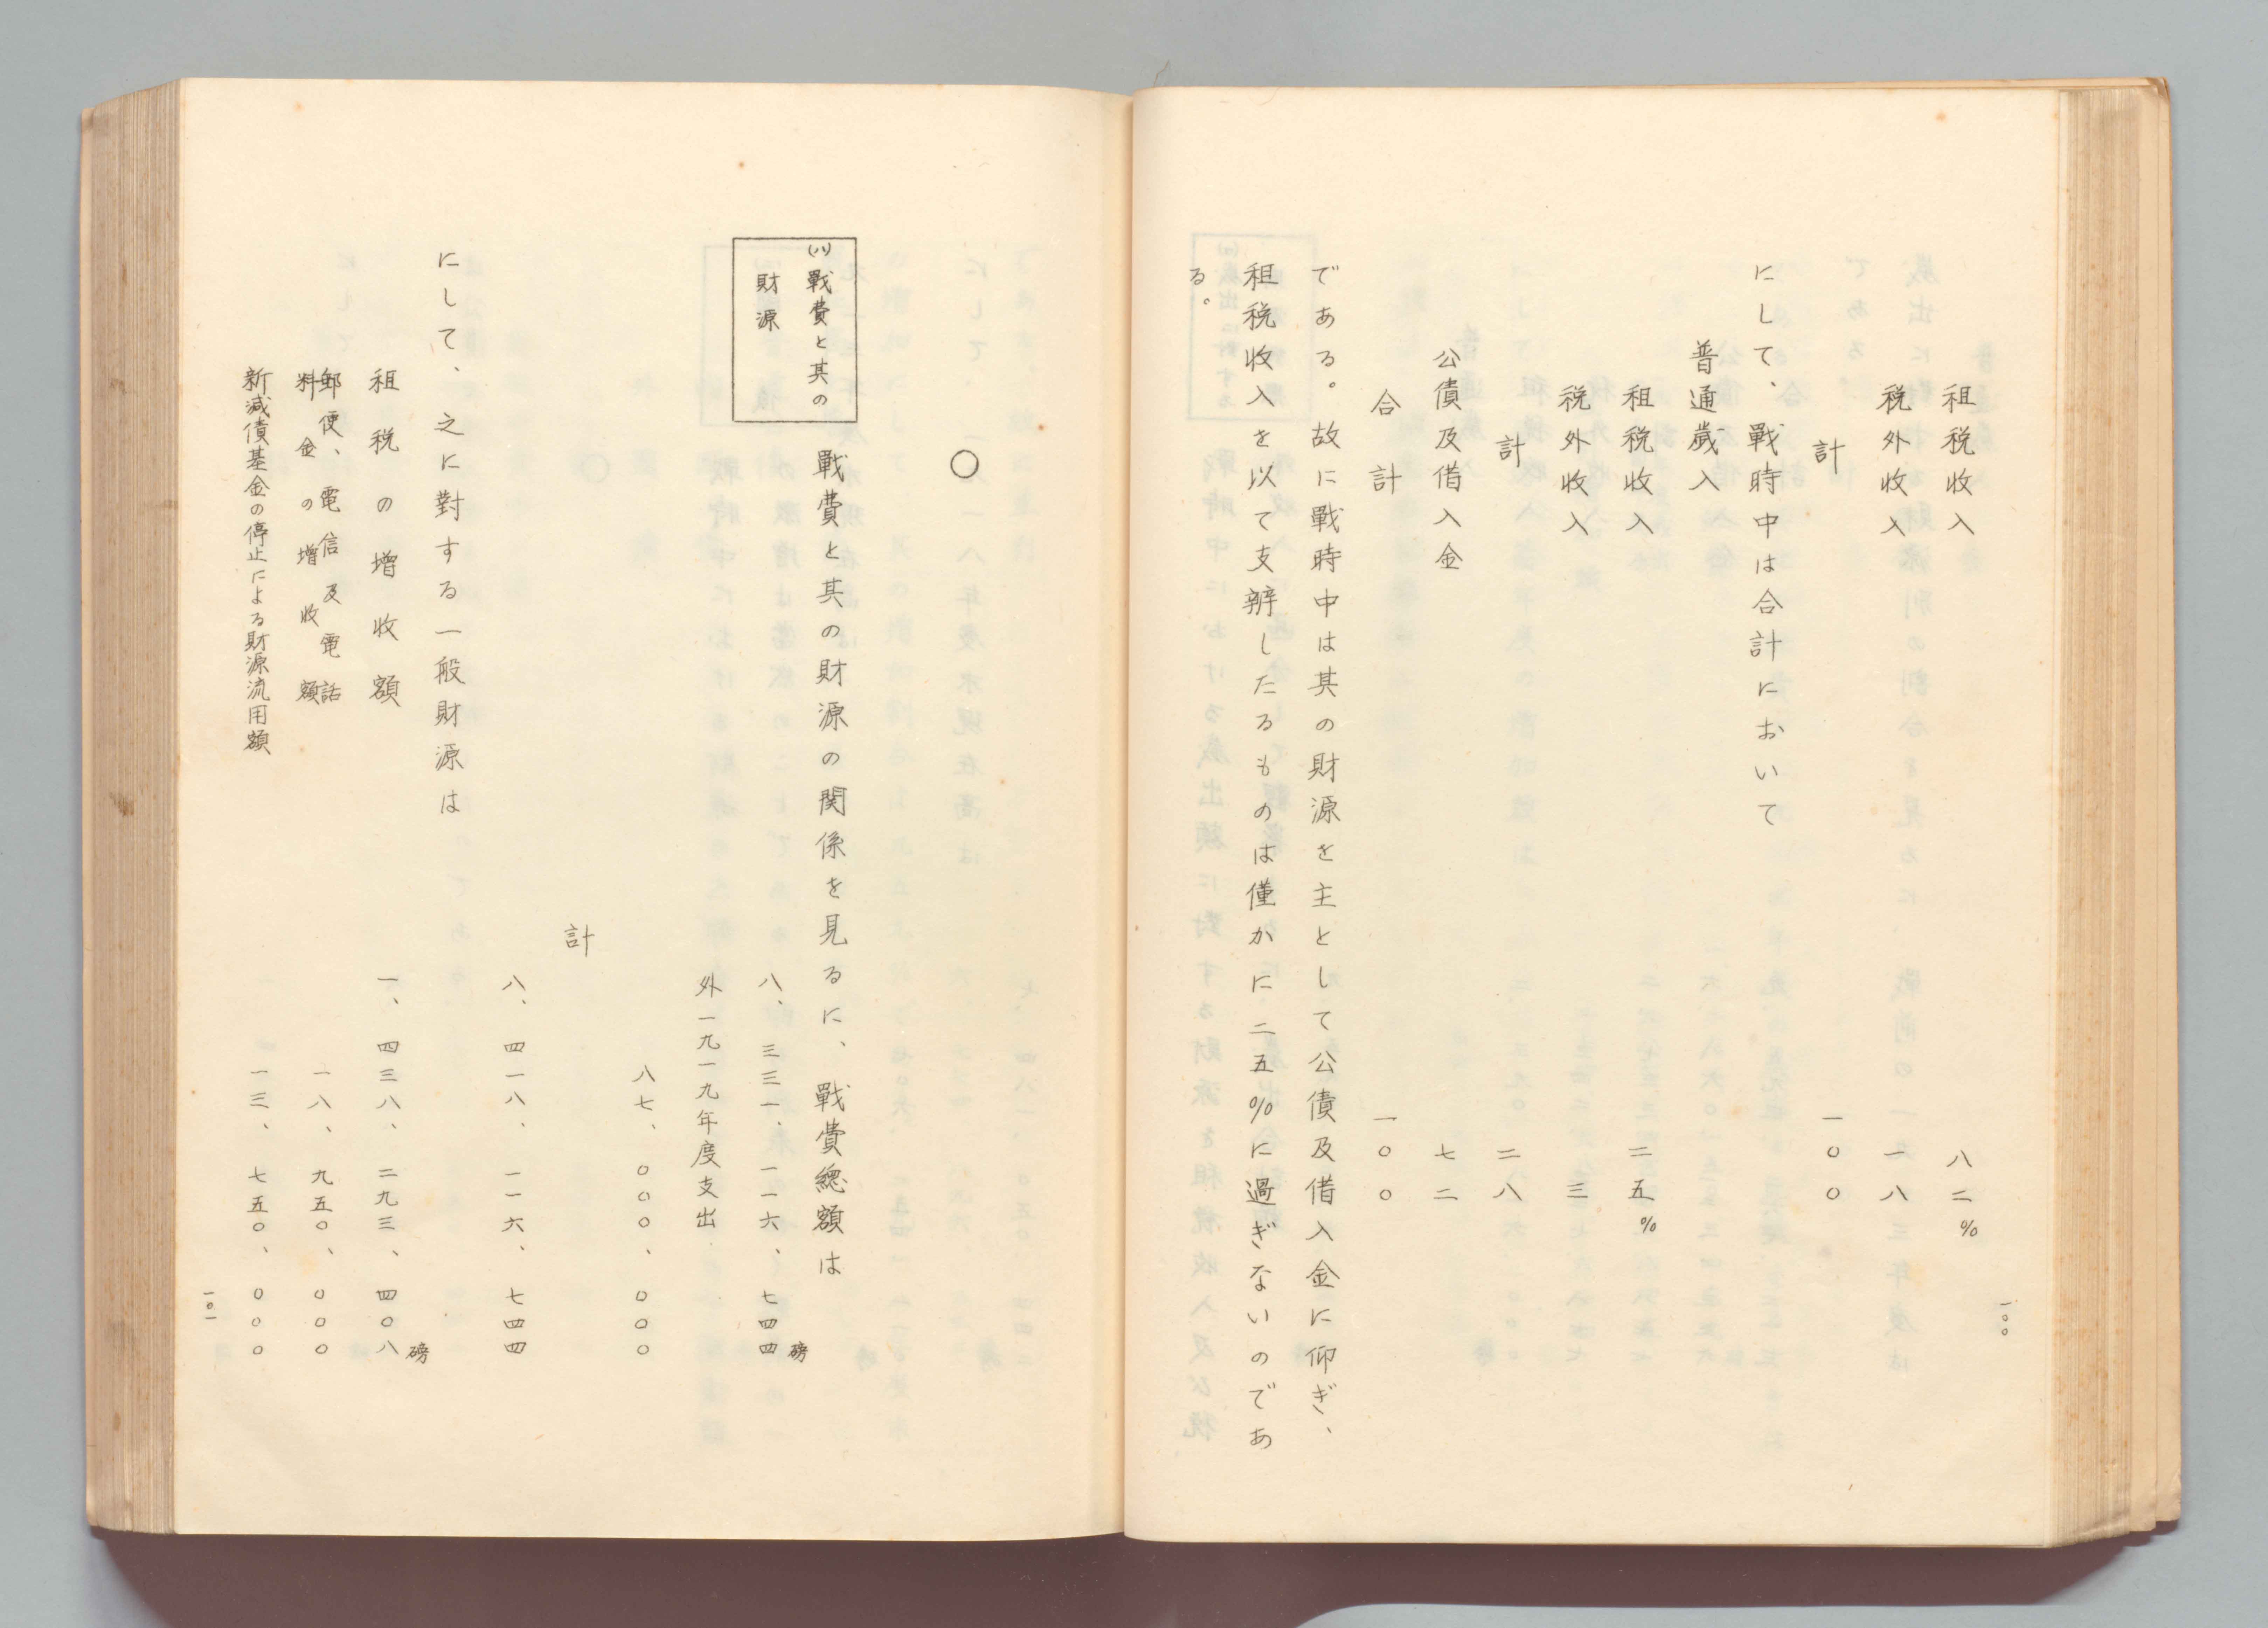 租税收入 八二%
税外收入 一八
計 一〇〇
にして、戰時中は合計において
普通歲入
租税收入 二五%
税外收入 三
計 二八
公債及借入金 七二
合計 一〇〇
である。故に戰時中は其の財源を主として公債及借入金に仰ぎ、
租税收入を以て支辨したるものは僅かに二五%に過ぎないのであ
る。
一〇〇
〇
(ハ)戰費と其の
財源
戰費と其の財源の関係を見るに、戰費總額は
八、三三一、一一六、七四四磅
外一九一九年度支出
八七、〇〇〇、〇〇〇
計
八、四一八、一一六、七四四
にして、之に對する一般財源は
租税の增收額 一、四三八、二九三、四〇八磅
郵便、電信及電話
料金の增收額 一八、九五〇、〇〇〇
新減債基金の停止による財源流用額 一三、七五〇、〇〇〇
一〇一